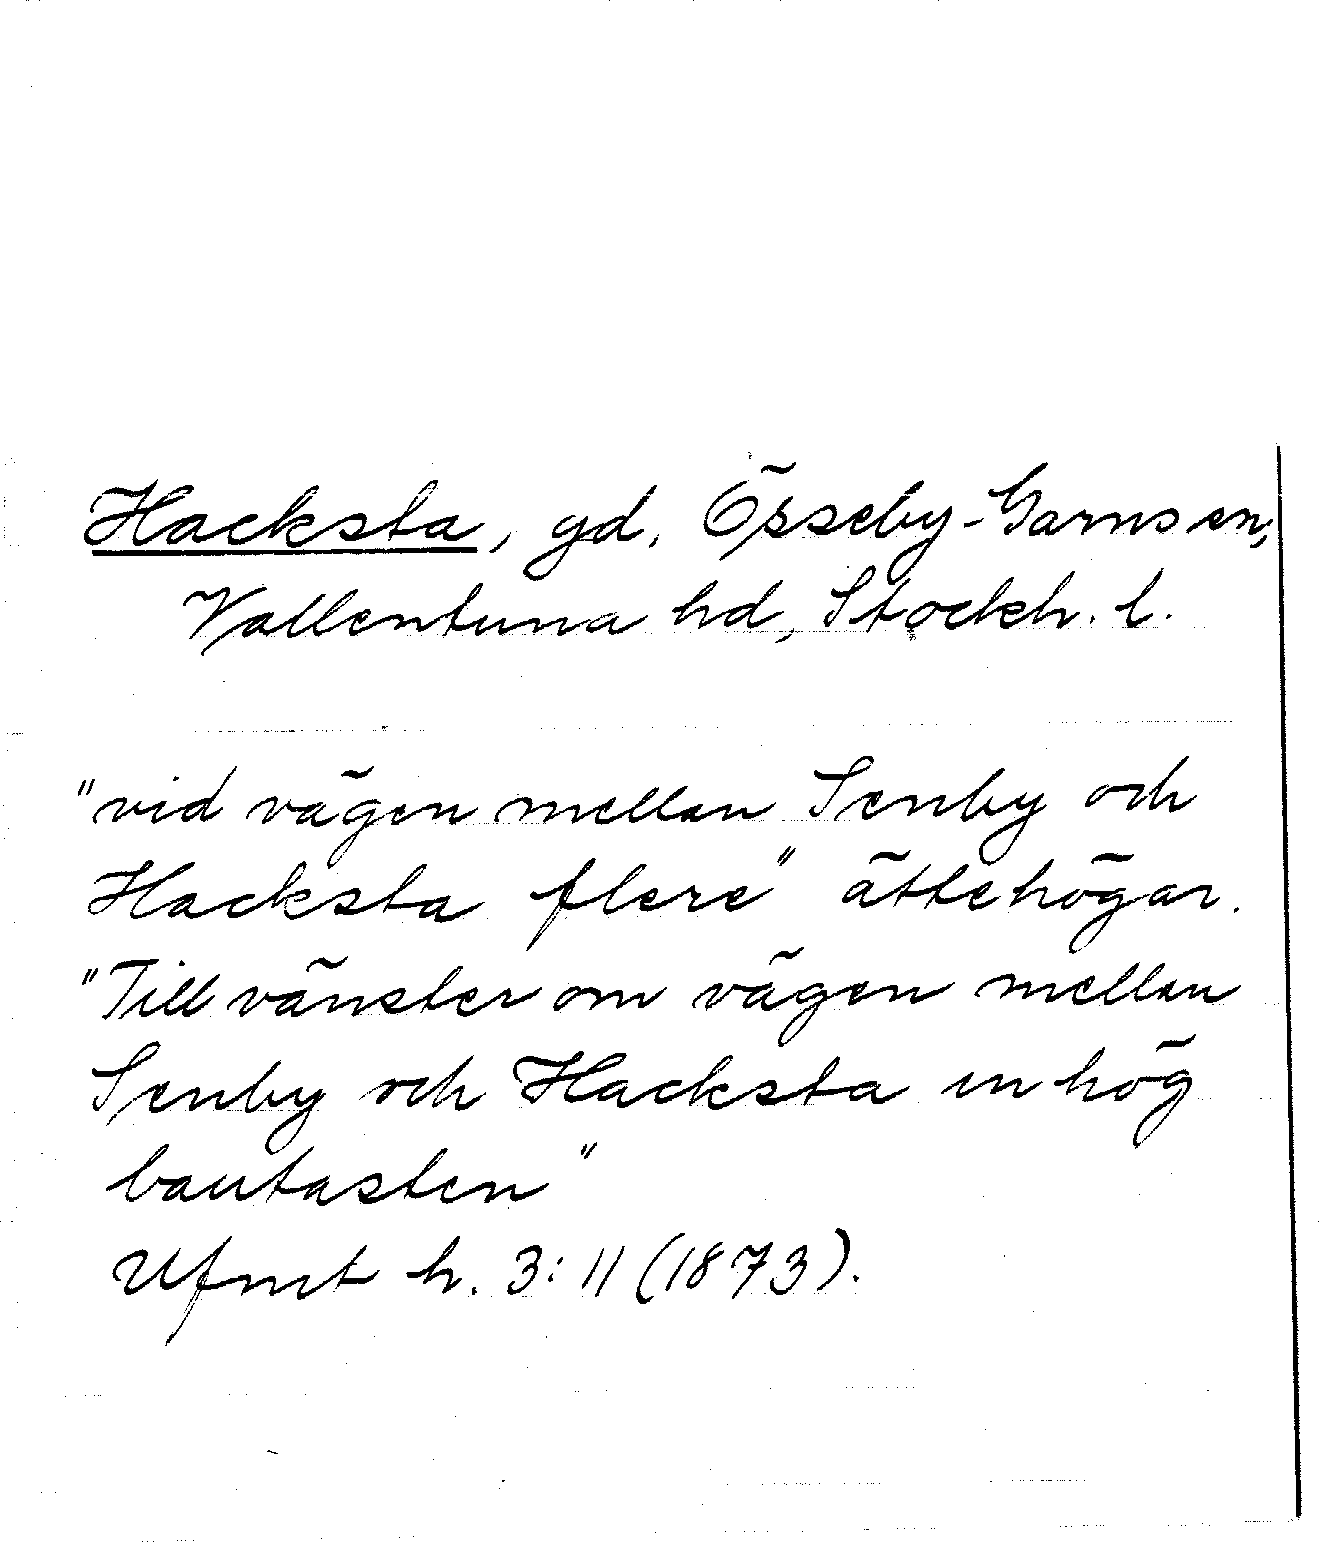 Hacksta, gd, Össeby-Garns sn,
Vallentuna hd, Stockh. l.
"vid vägen mellan Senby och
Hacksta flere" ättehögar.
"Till vänster om vägen mellan
Senby och Hacksta en hög
bautasten"
Ufmt h. 3:11 (1873).